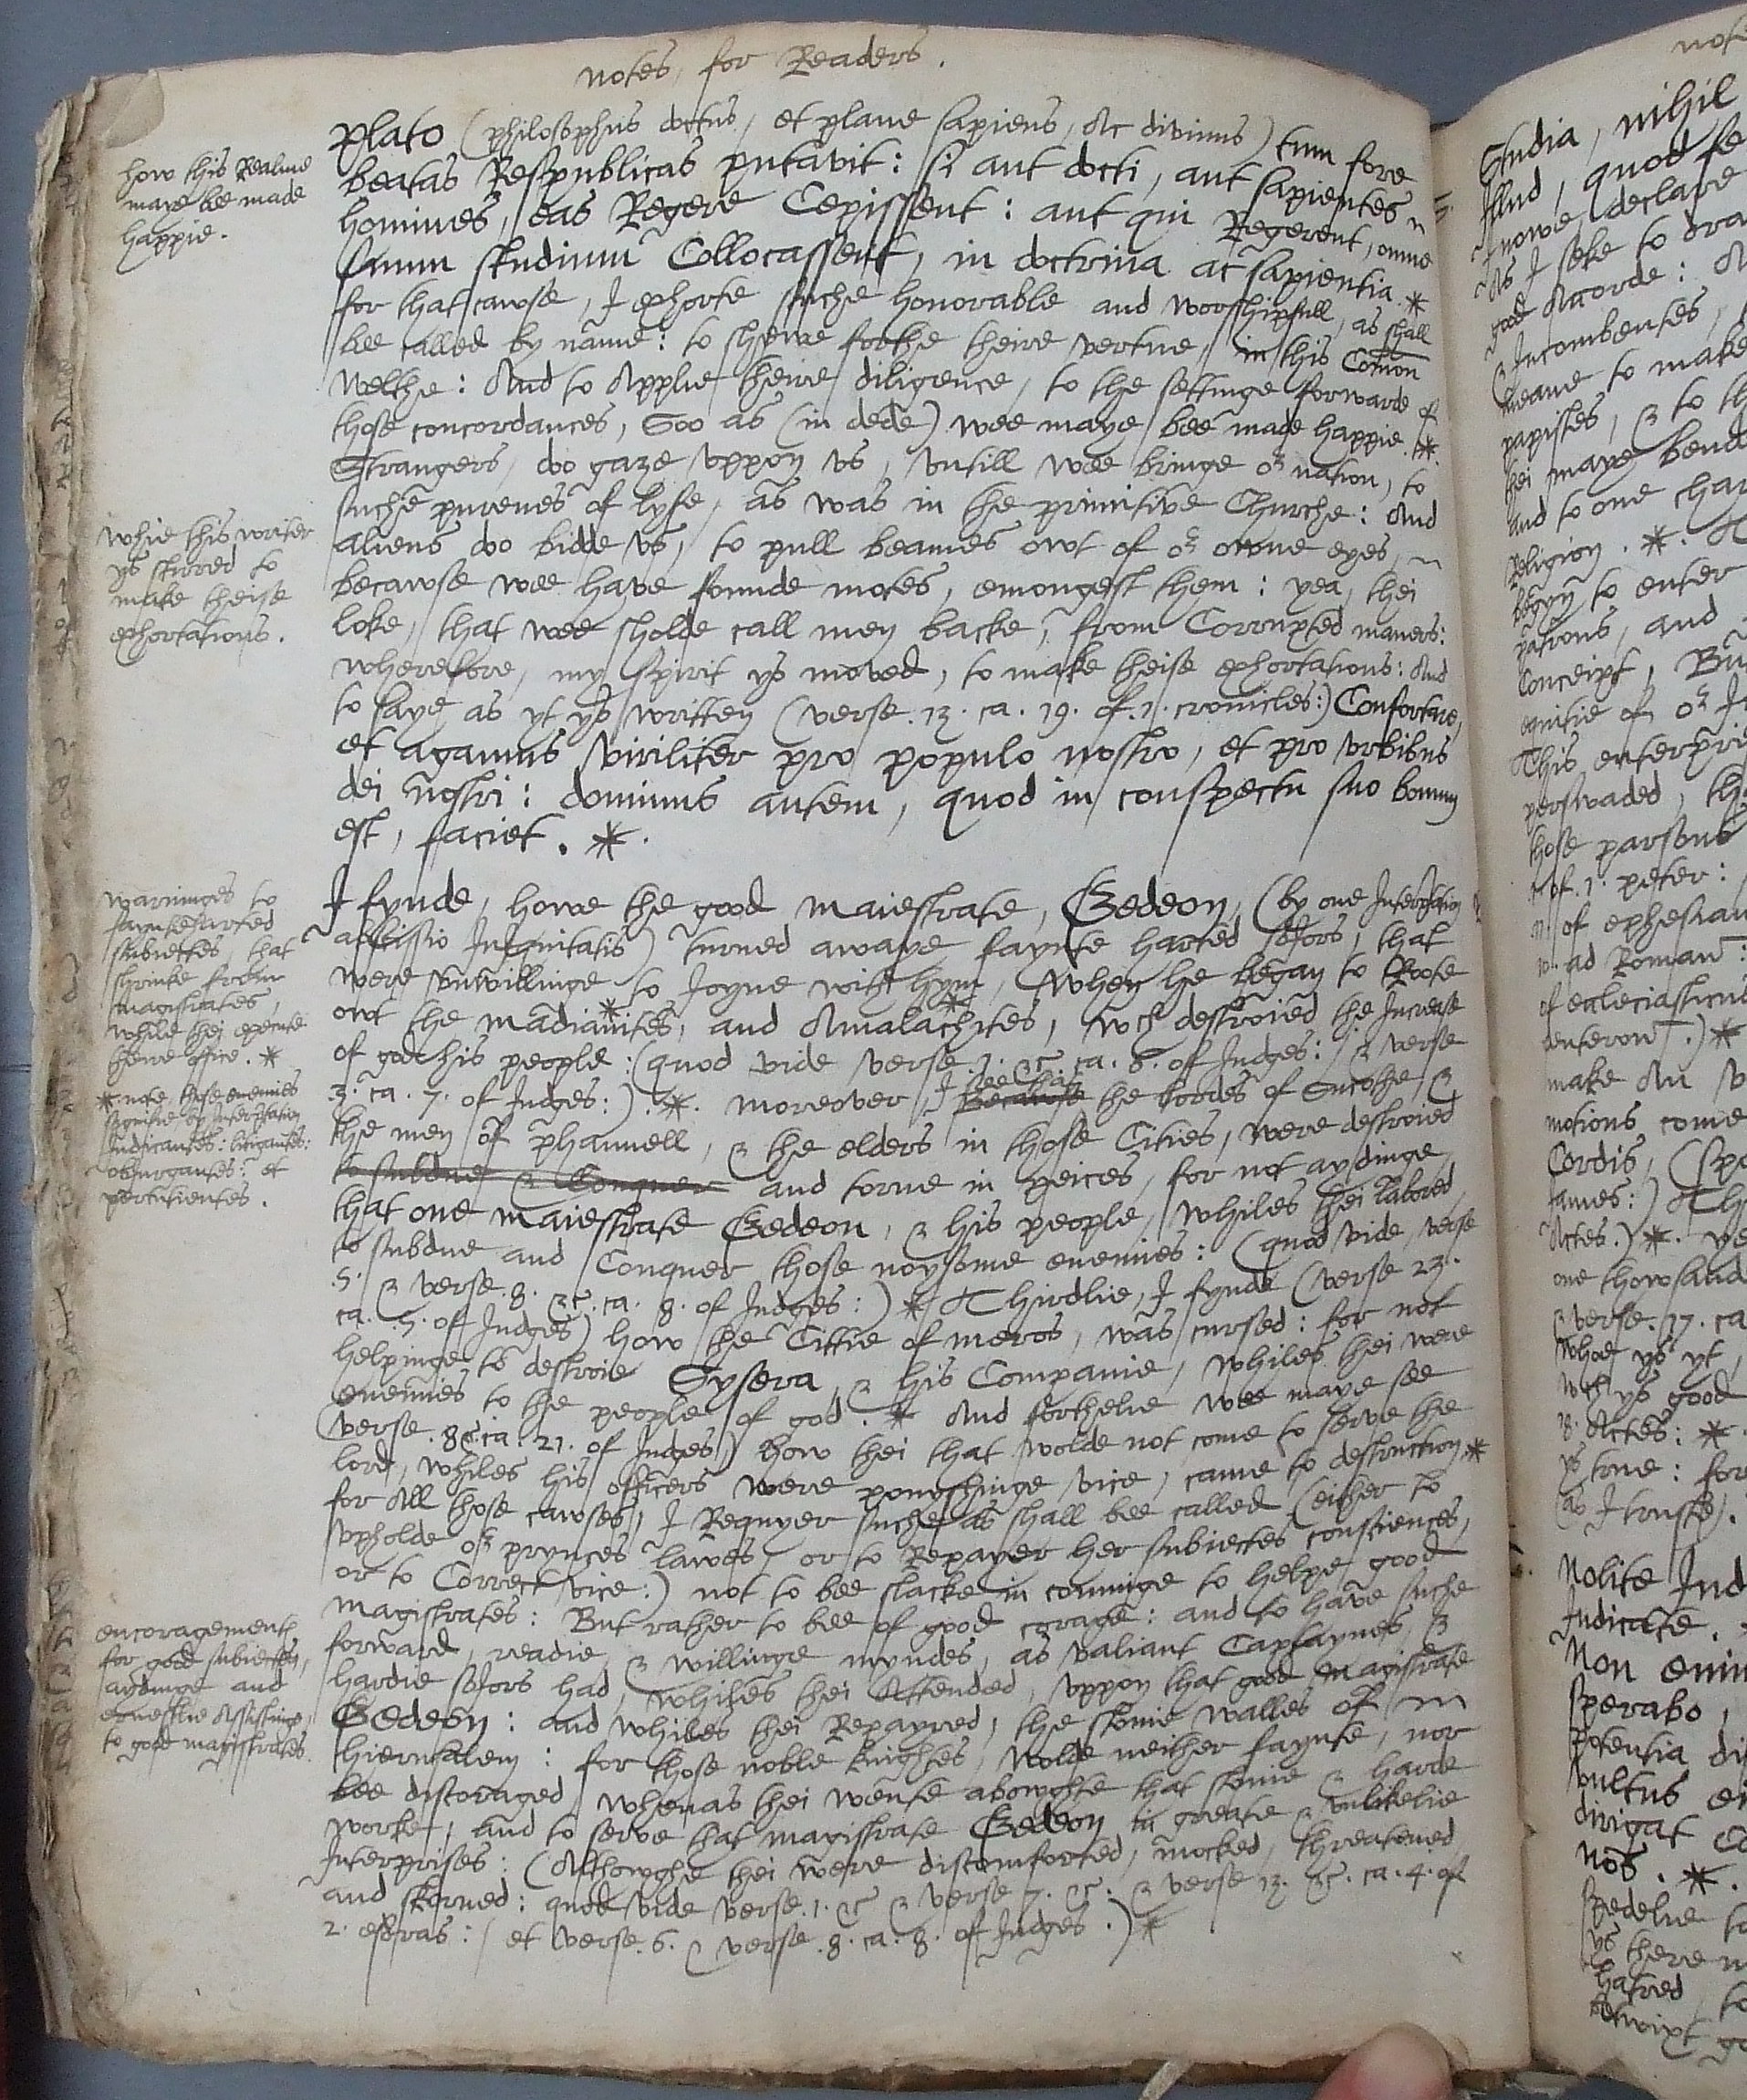 notes, for Readers.
Plato (philosophus doctus, et plane sapiens, Ac divinus) tum fore
beatas Respublicas putavit: si aut docti, aut sapientes
homines, eas Regere Cepissent: aut qui Regerent, omne
suum studium Collocassent, in doctrina ac sapientia *
for that cawse, I exhorte suche honorable and worshipfull, as shall
bee called by name: to shewe forthe theire vertue, in this Comon
Welthe: And to Applie theire diligence, to the settinge forwarde of
those concordances, Soo as (in dede) wee maye bee made happie. *.
Strangers, do gaze vppon vs, vntill wee bringe or nation, to
suche purenes of lyfe, as was in the primitive Churche: And
aliens do bidde vs, to pull beames owt of or owne eyes,
becawse wee have founde motes, emongest them: yea, thei
loke, that wee sholde call men backe, from Corrupted maners:
wherefore, my spirit ys moved, to make theise exhortations: And
to saye, as yt ys written (verse. 13. ca. 19. of. 1. cronicles:) Confortare,
et agamus viriliter pro populo nostro, et pro vrbibus
dei nostri: dominus autem, quod in conspectu suo bonum
est, faciet. *.
how this Realme
maye bee made
happie.
whie this writer
ys stirred to
make theise
exhortations.
I fynde, howe the good maiestrate, Gedeon, (by one Interpretation
Iniquitatis) turned awaye faynte harted sofors, that
were vnwillinge to Joyne with hym, When he began to Roote
owt the madianites, and Amalachites, wch destroied the Increase
of god his people: (quod vide verse. 1. &c. ca. 6. of Judges: & verse
3. ca. 7. of Judges:) .*. moreover, I see that the Lordes of Sucothe, &
the men of phanuell, & the elders in those Cities, were destroied
to subdue & Conquer and torne in peices, for not aydinge
that one maiestrate Gedeon, & his people, whiles thei labored
to subdue and Conquer those noysome enemies: (quod vide, verse
5. & verse. 8. &c. ca. 8. of Judges:) * Thirdlie, I fynde (verse 23.
ca. 5. of Judges) how the Cittie of meros, was cursed: for not
helpinge to destroie Sysera, & his Companie, whiles thei were
enemies to the people of god. * And forthelie wee maye see
(verse. 8. &c. ca. 21. of Judges) how thei that wolde not come to serve the
lord, whiles his officers were ponyshinge vice, came to destruction *
for All those cawses, I Requyer suche as shall bee called (either to
vpholde or prynces lawes, or to Repayer her subiectes consciences,
or to Correct vice:) not to bee slacke in comminge to helpe good
magistrates: But rather to bee of good corage: and to have suche
forward, readie, & willinge myndes, as valiant Captaynes, &
hardie sofors had, whiles thei Attended, vppon that good magistrate
Gedeon: and whiles thei Repayred, the stonie walles of
hierusalem: for those noble knightes, wolde neither faynte, nor
bee discoraged, whenas thei wente abowghte that stonie & harde
worke, and to serve that magistrate Gedeon in greate & vnlikelie
Interprises: (Althowghe thei were discomforted, mocked, threatened,
and skorned: quod vide verse. 1. &c & verse 7. &c. & verse 13. &c. ca. 4. of
2. esdras: et verse. 6. & verse. 8. ca. 8. of Judges.) *
warninges to
faynteharted
subiectes, that
shrinke from
magistrates,
while thei execute
theire office. *
* note, those enemies
signifie by Interpretation
Iudicantes: litigantes:
obiurgantes: et
percutientes.
encoragemente
for good subiectes,
aydinge and
ernestlie Assistinge,
to good magistrates.
note
Studia, nihil
Illud, quod se
I nowe declare
As I seke to dra
good Accorde: A
& Incombentes,
meane to make
papistes, & to th
thei maye bend
and to one char
Religion. *.
begyn to enter
patrons, and
Conceipt, Bu
enitie of or
This enterpri
perswaded, th
those parsons
of. 1. peter:
of ephesian
ad Roman:
of ecleciasticus
deuteron.) *
make An v
motions come
Cordis, (spo
James:) Th
Actes.) *. ye
one thowsand
& verse. 17. ca
whoe ys yt,
wch ys good
18. Actes: *.
ys true: for
(as I truste).
Nolite Iud
Iudicate.
Non enim
sperabo,
Potentia di
vultus ei
dirigat Co
nos. *.
spedelie to
ys there n
hatred, to
betwixt go